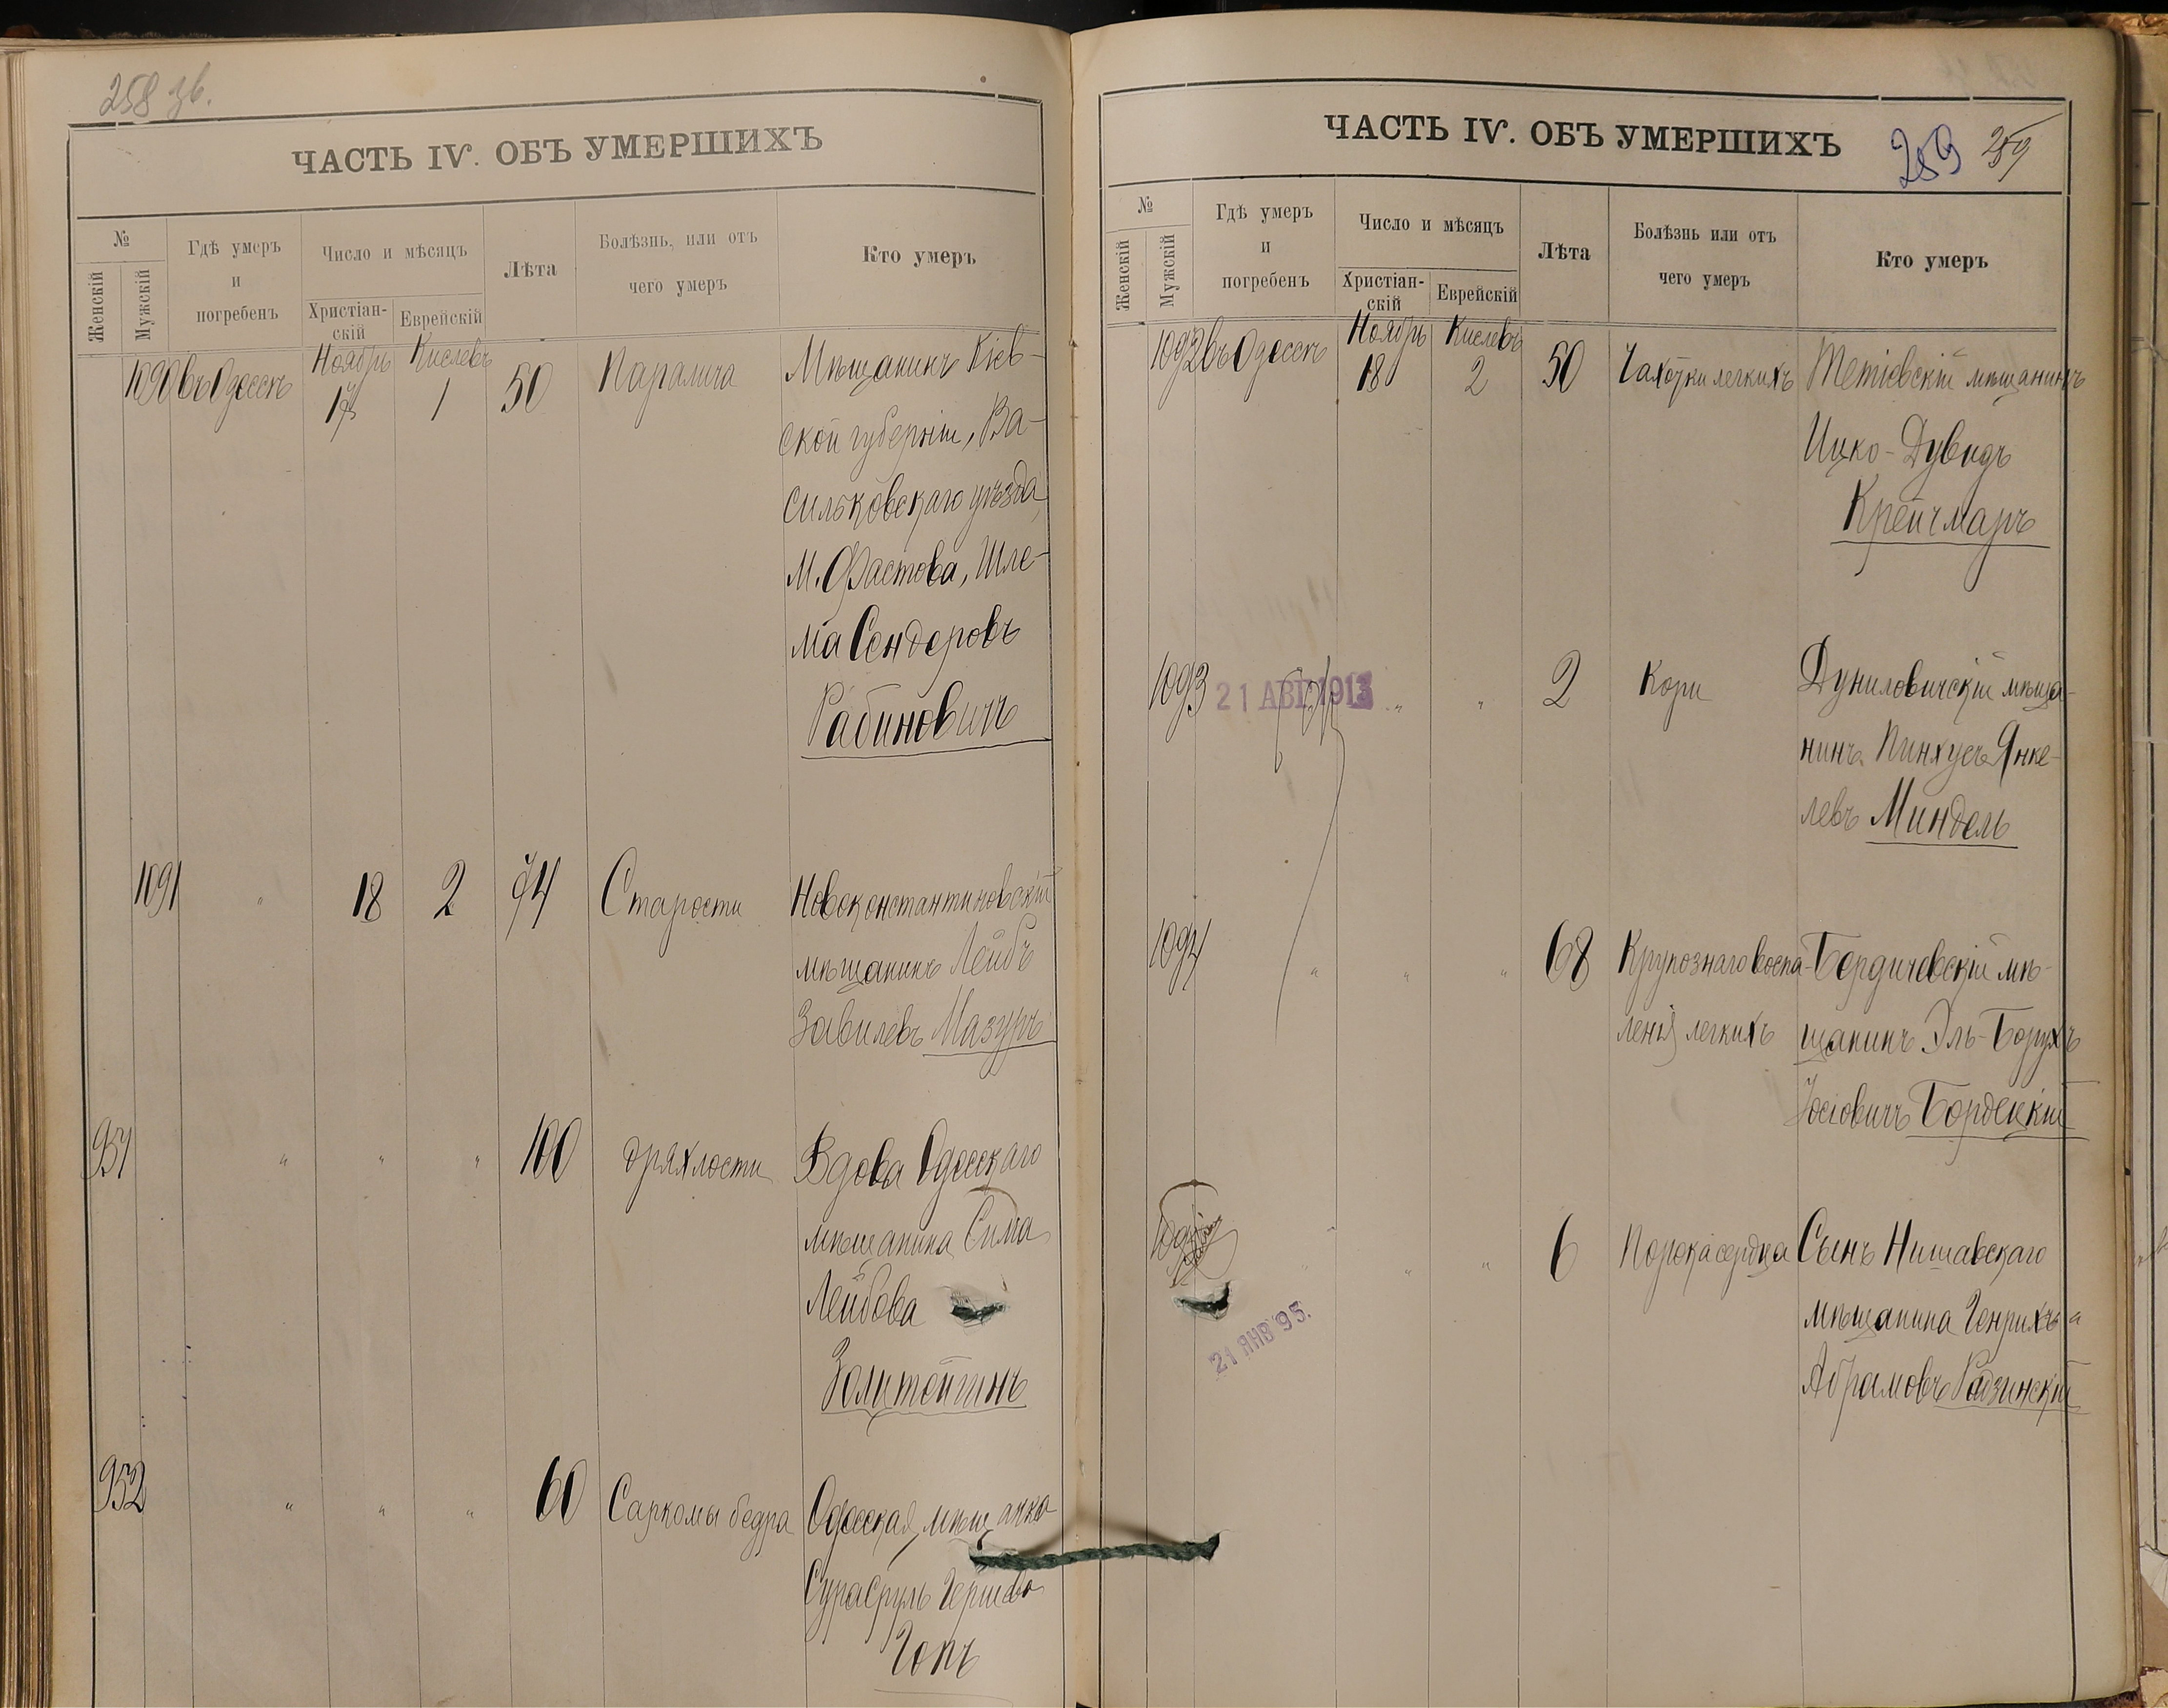 258 зв.
ЧАСТЬ IV. ОБЪ УМЕРШИХЪ
№
Женскій
Мужскій
Гдѣ умеръ
и
погребенъ
Число и мѣсяцъ
Христіан-
скій
Еврейскій
Лѣта
Болѣзнь, или отъ
чего умеръ
Кто умеръ
1090 въ Одессѣ Ноябрь 17 Кислевъ 1 50 Паралича Мѣщанинъ Кіев-
ской губерніи, Ва-
сильковскаго уѣзда,
М. Фастова, Шле-
ма Сендеровъ
Рабиновичъ
1091 " 18 2 94 Старости Новоконстантиновскій
мѣщанинъ Лейбъ
Завилевъ Мазуръ
951 " " " 100 дряхлости Вдова Одесскаго
мѣщанина Сима
Лейбова
952 " " " 60 Саркомы бедра Одесская мѣщанка
Гершева
Гопъ
ЧАСТЬ IV. ОБЪ УМЕРШИХЪ
259 259
№
Женскій
Мужскій
Гдѣ умеръ
и
погребенъ
Число и мѣсяцъ
Христіан-
скій
Еврейскій
Лѣта
Болѣзнь или отъ
чего умеръ
Кто умеръ
1092 въ Одессѣ Ноябрь 18 Кислевъ 2 50 Чахотки легкихъ Тетіевскій мѣщанинъ
Ицко-Дувидъ
Крейчмаръ
1093 21 АВГ 1913 " " 2 Кори Дуниловичскій мѣща-
нинъ Пинхусъ Янке-
левъ Миндель
1094 " " " 68 Крупознаго воспа- Бердичевскій мѣ-
ленія легкихъ щанинъ Эль-Борухъ
Іосіовичъ Бордецкій
1095 " " " 6 Порока сердца Сынъ Нишавскаго
мѣщанина Генрихъ
Абрамовъ Радзинскій
21 ЯНВ 95.